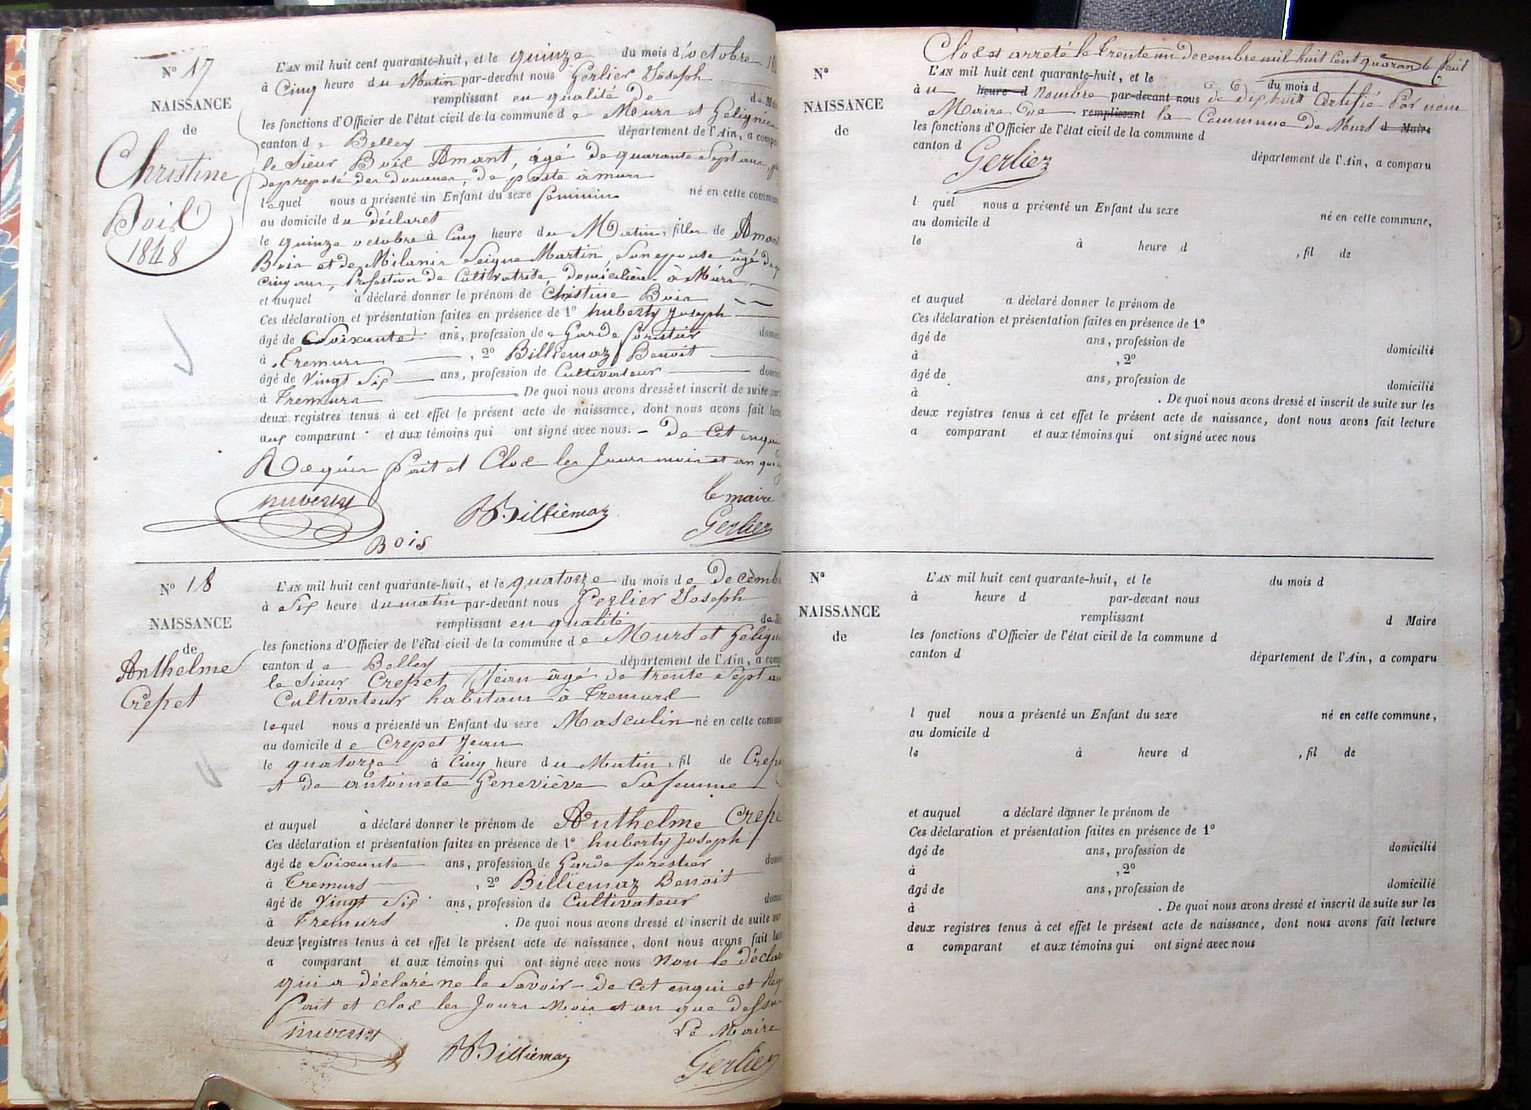 N° 17
NAISSANCE
de
Christine
Bois
1848
L'AN mil huit cent quarante-huit, et le quinze du mois d'octobre
à Cinq heure du Matin par-devant nous Gerlier Joseph
remplissant en qualité de
les fonctions d'Officier de l'état civil de la commune de Murs et Gelignieu
canton de Belley département de l'Ain, a comparu
le Sieur Bois Amant, âgé de quarante Sept ans
des douanes, de poste à murs
lequel nous a présenté un Enfant du sexe feminin né en cette commune
au domicile du déclaret
le quinze octobre à Cinq heure du Matin, filla de Amant
Bois et de Milanie Seigne Martin, Son epouse âgé de
Cinq ans, Profession de Cultivatrice, domiciliée à Murs
et auquel à déclaré donner le prénom de Christine Bois
Ces déclaration et présentation faites en présence de 1° huberty Joseph
âgé de Soixante ans, profession de Garde forestier
à Tremurs , 2° Billiemaz Benoit
âgé de Vingt Six ans, profession de Cultivateur
à Tremurs De quoi nous avons dressé et inscrit de suite sur
deux registres tenus à cet effet le présent acte de naissance, dont nous avons fait
aux comparant et aux témoins qui ont signé avec nous. – de Cet enquis
Requis fait et Clos les Jours mois et an que
huberty
Billiemaz
le maire
Gerlier
Bois
N° 18
NAISSANCE
de
Anthelme
Crepet
L'AN mil huit cent quarante-huit, et le quatorze du mois de Decembre
à Six heure du matin par-devant nous Gerlier Joseph
remplissant en qualité
les fonctions d'Officier de l'état civil de la commune de Murs et Gelignieu
canton de Belley département de l'Ain, a comparu
le Sieur Crepet Jean âgé de trente Sept ans
Cultivateur habitant à Tremurs
lequel nous a présenté un Enfant du sexe Masculin né en cette commune
au domicile de Crepet Jean
le quatorze à Cinq heure du Matin, fil de Crepet
et de antoinete Geneviève Sa femme
et auquel à déclaré donner le prénom de Anthelme Crepet
Ces déclaration et présentation faites en présence de 1° huberty Joseph
âgé de Soixante ans, profession de Garde forestier
à Tremurs , 2° Billiemaz Benoit
âgé de Vingt Six ans, profession de Cultivateur
à Tremurs . De quoi nous avons dressé et inscrit de suite sur
deux registres tenus à cet effet le présent acte de naissance, dont nous avons fait
a comparant et aux témoins qui ont signé avec nous Non le déclarant
qui a déclaré ne le Savoir – de Cet enqui et Requi
fait et clos les Jours Mois et an que dessus
huberty
Billiemaz
Le Maire
Gerlier
Clos et arreté le trente un decembre mil huit Cent quarante huit
N°
NAISSANCE
de
L'AN mil huit cent quarante-huit, et le du mois d
à u heure d Nombre par-devant nous de dix huit Certifié Par nous
Maire de remplissant la Commune de Murs d Maire
les fonctions d'Officier de l'état civil de la commune d
canton d département de l'Ain, a comparu
Gerlier
l quel nous a présenté un Enfant du sexe né en cette commune,
au domicile d
le à heure d , fil de
et auquel a déclaré donner le prénom de
Ces déclaration et présentation faites en présence de 1°
âgé de ans, profession de domicilié
à , 2°
âgé de ans, profession de domicilié
à . De quoi nous avons dressé et inscrit de suite sur les
deux registres tenus à cet effet le présent acte de naissance, dont nous avons fait lecture
a comparant et aux témoins qui ont signé avec nous
N°
NAISSANCE
de
L'AN mil huit cent quarante-huit, et le du mois d
à heure d par-devant nous
remplissant d Maire
les fonctions d'Officier de l'état civil de la commune d
canton d département de l'Ain, a comparu
l quel nous a présenté un Enfant du sexe né en cette commune,
au domicile d
le à heure d , fil de
et auquel a déclaré donner le prénom de
Ces déclaration et présentation faites en présence de 1°
âgé de ans, profession de domicilié
à , 2°
âgé de ans, profession de domicilié
à . De quoi nous avons dressé et inscrit de suite sur les
deux registres tenus à cet effet le présent acte de naissance, dont nous avons fait lecture
a comparant et aux témoins qui ont signé avec nous